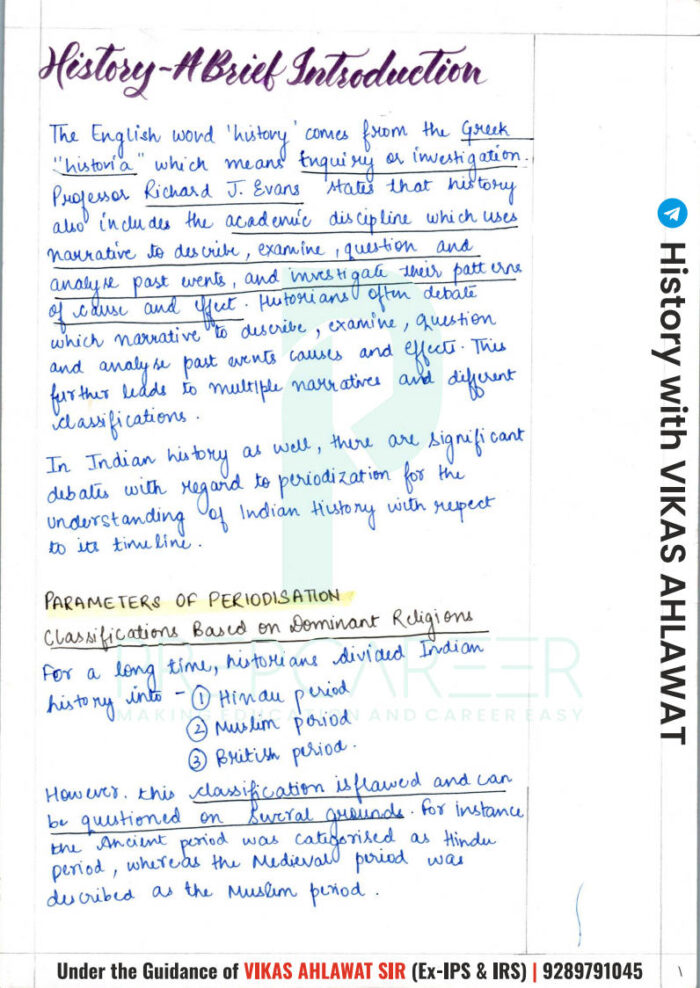 History-A Brief Introduction
The English word 'history' comes from the Greek
"historia" which means Enquiry or investigation.
Professor Richard J. Evans states that history
also includes the academic discipline which uses
narrative to describe, examine, question and
analyse past events, and investigate their patterns
of cause and effect. Historians often debate
which narrative to describe, examine, question
and analyse past events causes and effects. This
further leads to multiple narratives and different
classifications.
In Indian history as well, there are significant
debates with regard to periodization for the
understanding of Indian History with respect
to its timeline.
PARAMETERS OF PERIODISATION
Classifications Based on Dominant Religions
For a long time, historians divided Indian
history into - ① Hindu period
② Muslim period
③ British period.
However, this classification is flawed and can
be questioned on several grounds. For instance
the Ancient period was categorised as Hindu
period, whereas the Medieval period was
described as the Muslim period.
PCAREER
MAKING EDUCATION AND CAREER EASY
History with VIKAS AHLAWAT
Under the Guidance of VIKAS AHLAWAT SIR (Ex-IPS & IRS) | 9289791045
1